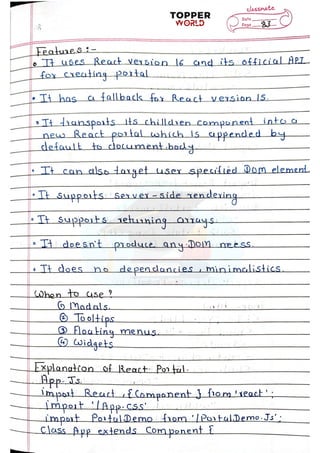 classmate
TOPPER
WORLD
Date
Page
Features :-
It uses React version 16 and its official API
for creating portal
It has a fallback for React version 15.
It transports its children component into a
new React portal which is appended by
default to document.body.
It can also target user specified DOM element
It supports server-side rendering
It supports returning arrays.
It doesn't produce any DOM mess.
It does no dependancies, minimalistics.
When to use ?
① Modals.
② Tooltips
③ Floating menus.
④ Widgets
Explanation of React Portal.
App. Js.
import React , { Component } from 'react';
import './App.css'
import PortalDemo from './PortalDemo.Js';
Class App extends Component {